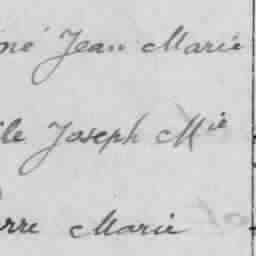 né Jean Marie
le Joseph Mie
rre Marie